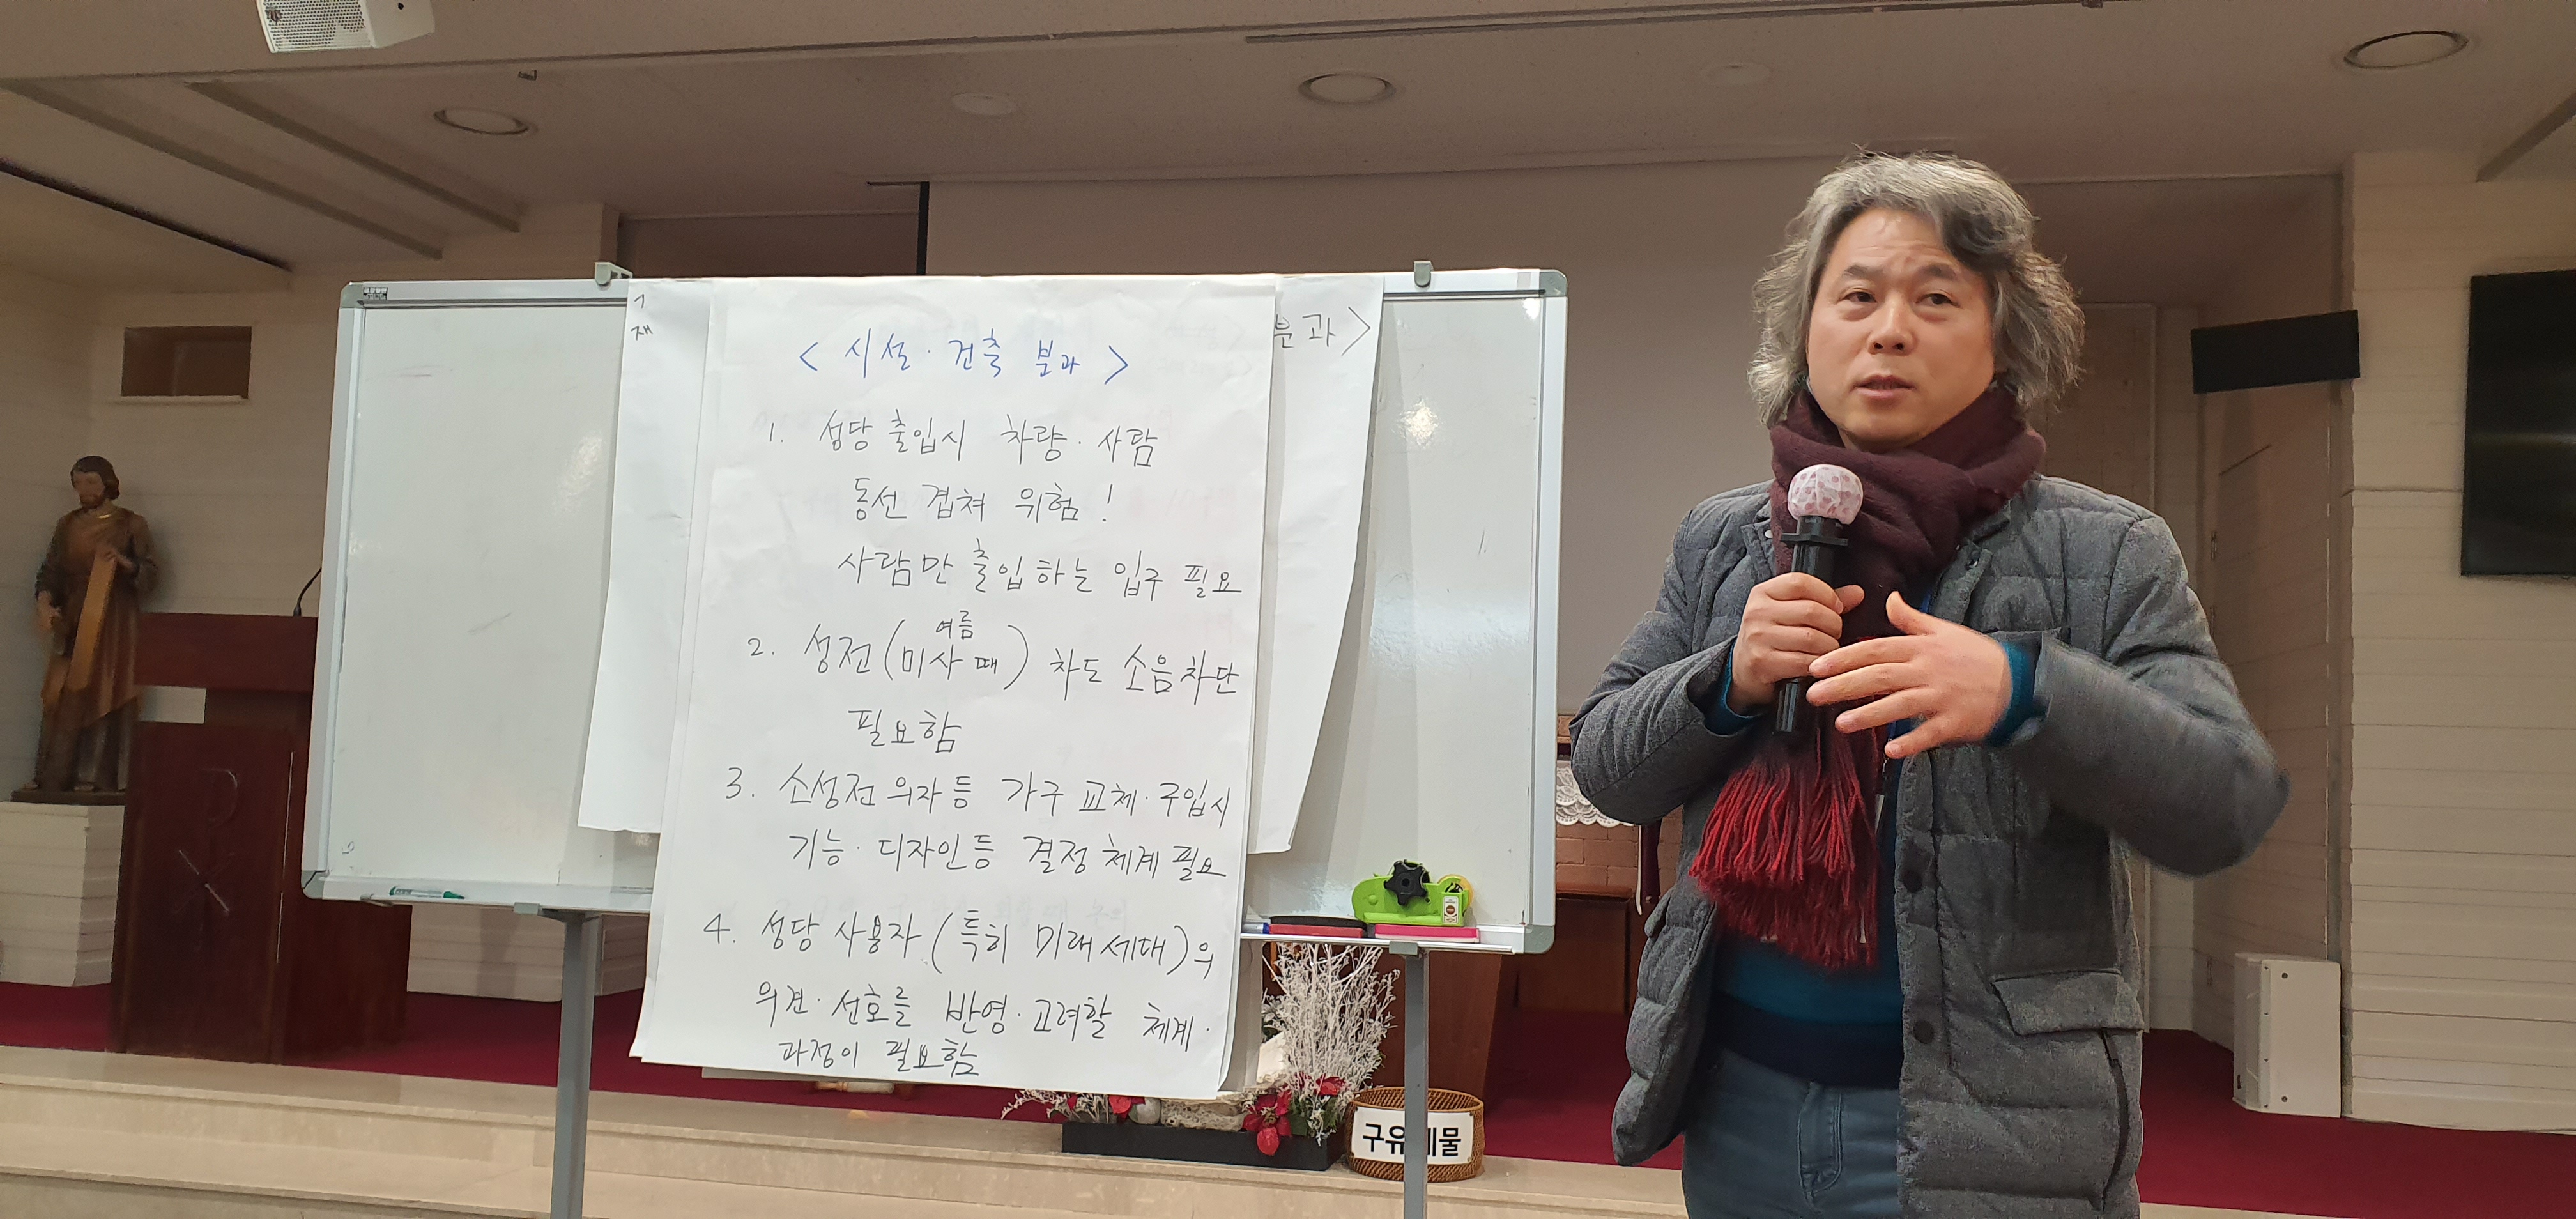 재
분과>
< 시설·건축 분과 >
1. 성당 출입시 차량·사람
동선 겹쳐 위험!
사람만 출입하는 입구 필요
여름
2. 성전(미사 때) 차도 소음차단
필요함
3. 소성전 의자등 가구 교체·구입시
기능·디자인등 결정 체계 필요
4. 성당 사용자(특히 미래세대)의
의견·선호를 반영·고려할 체계·
과정이 필요함
구유 물